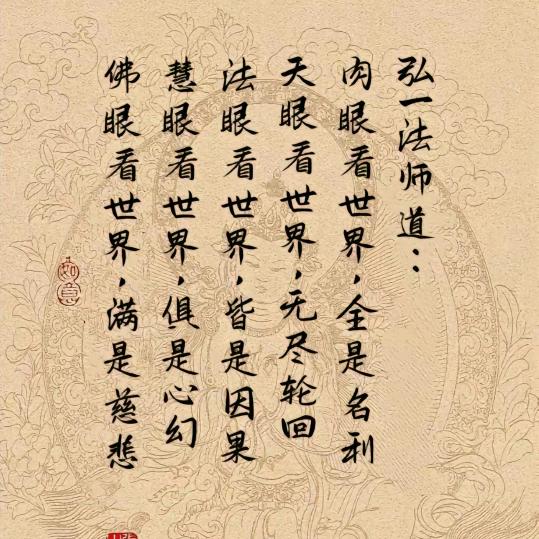 弘一法师道：
肉眼看世界，全是名利
天眼看世界，无尽轮回
法眼看世界，皆是因果
慧眼看世界，俱是心幻
佛眼看世界，满是慈悲
如意